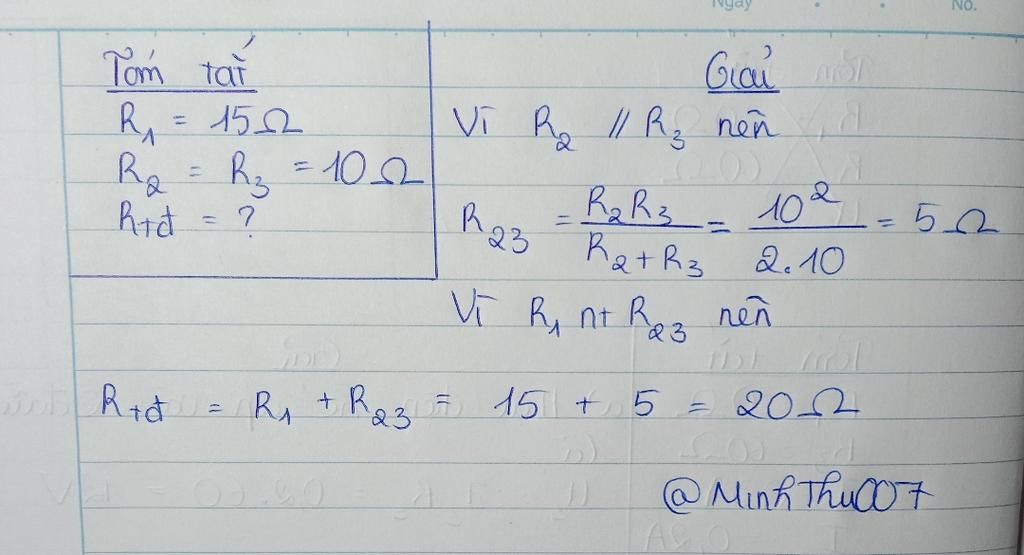 Ngày
No.
Tóm tắt
R₁ = 15Ω
R₂ = R₃ = 10Ω
Rtđ = ?
Giải
Vì R₂ // R₃ nên
R₂₃ = R₂R₃ / R₂+R₃ = 10² / 2.10 = 5Ω
Vì R₁ nt R₂₃ nên
Rtđ = R₁ + R₂₃ = 15 + 5 = 20Ω
@MinhThu007